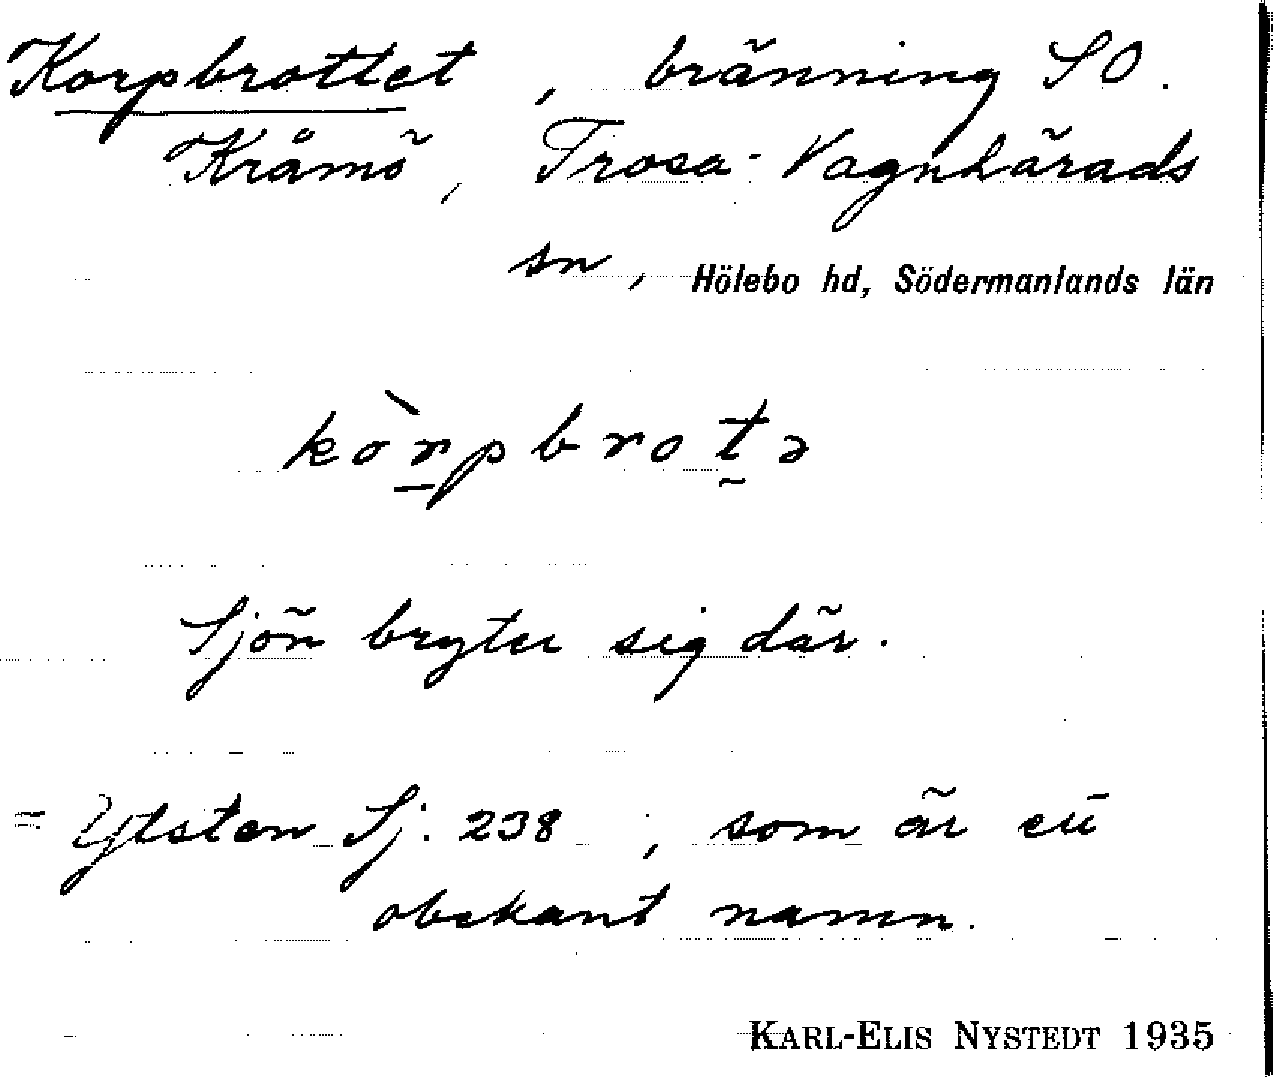 Korpbrottet, bränning SO.
Kråmö, Trosa-Vagnhärads
sn, Hölebo hd, Södermanlands län
kòrpbrotə
Sjön bryter sig där.
= Ylsten Sj. 238, som är ett
obekant namn.
KARL-ELIS NYSTEDT 1935